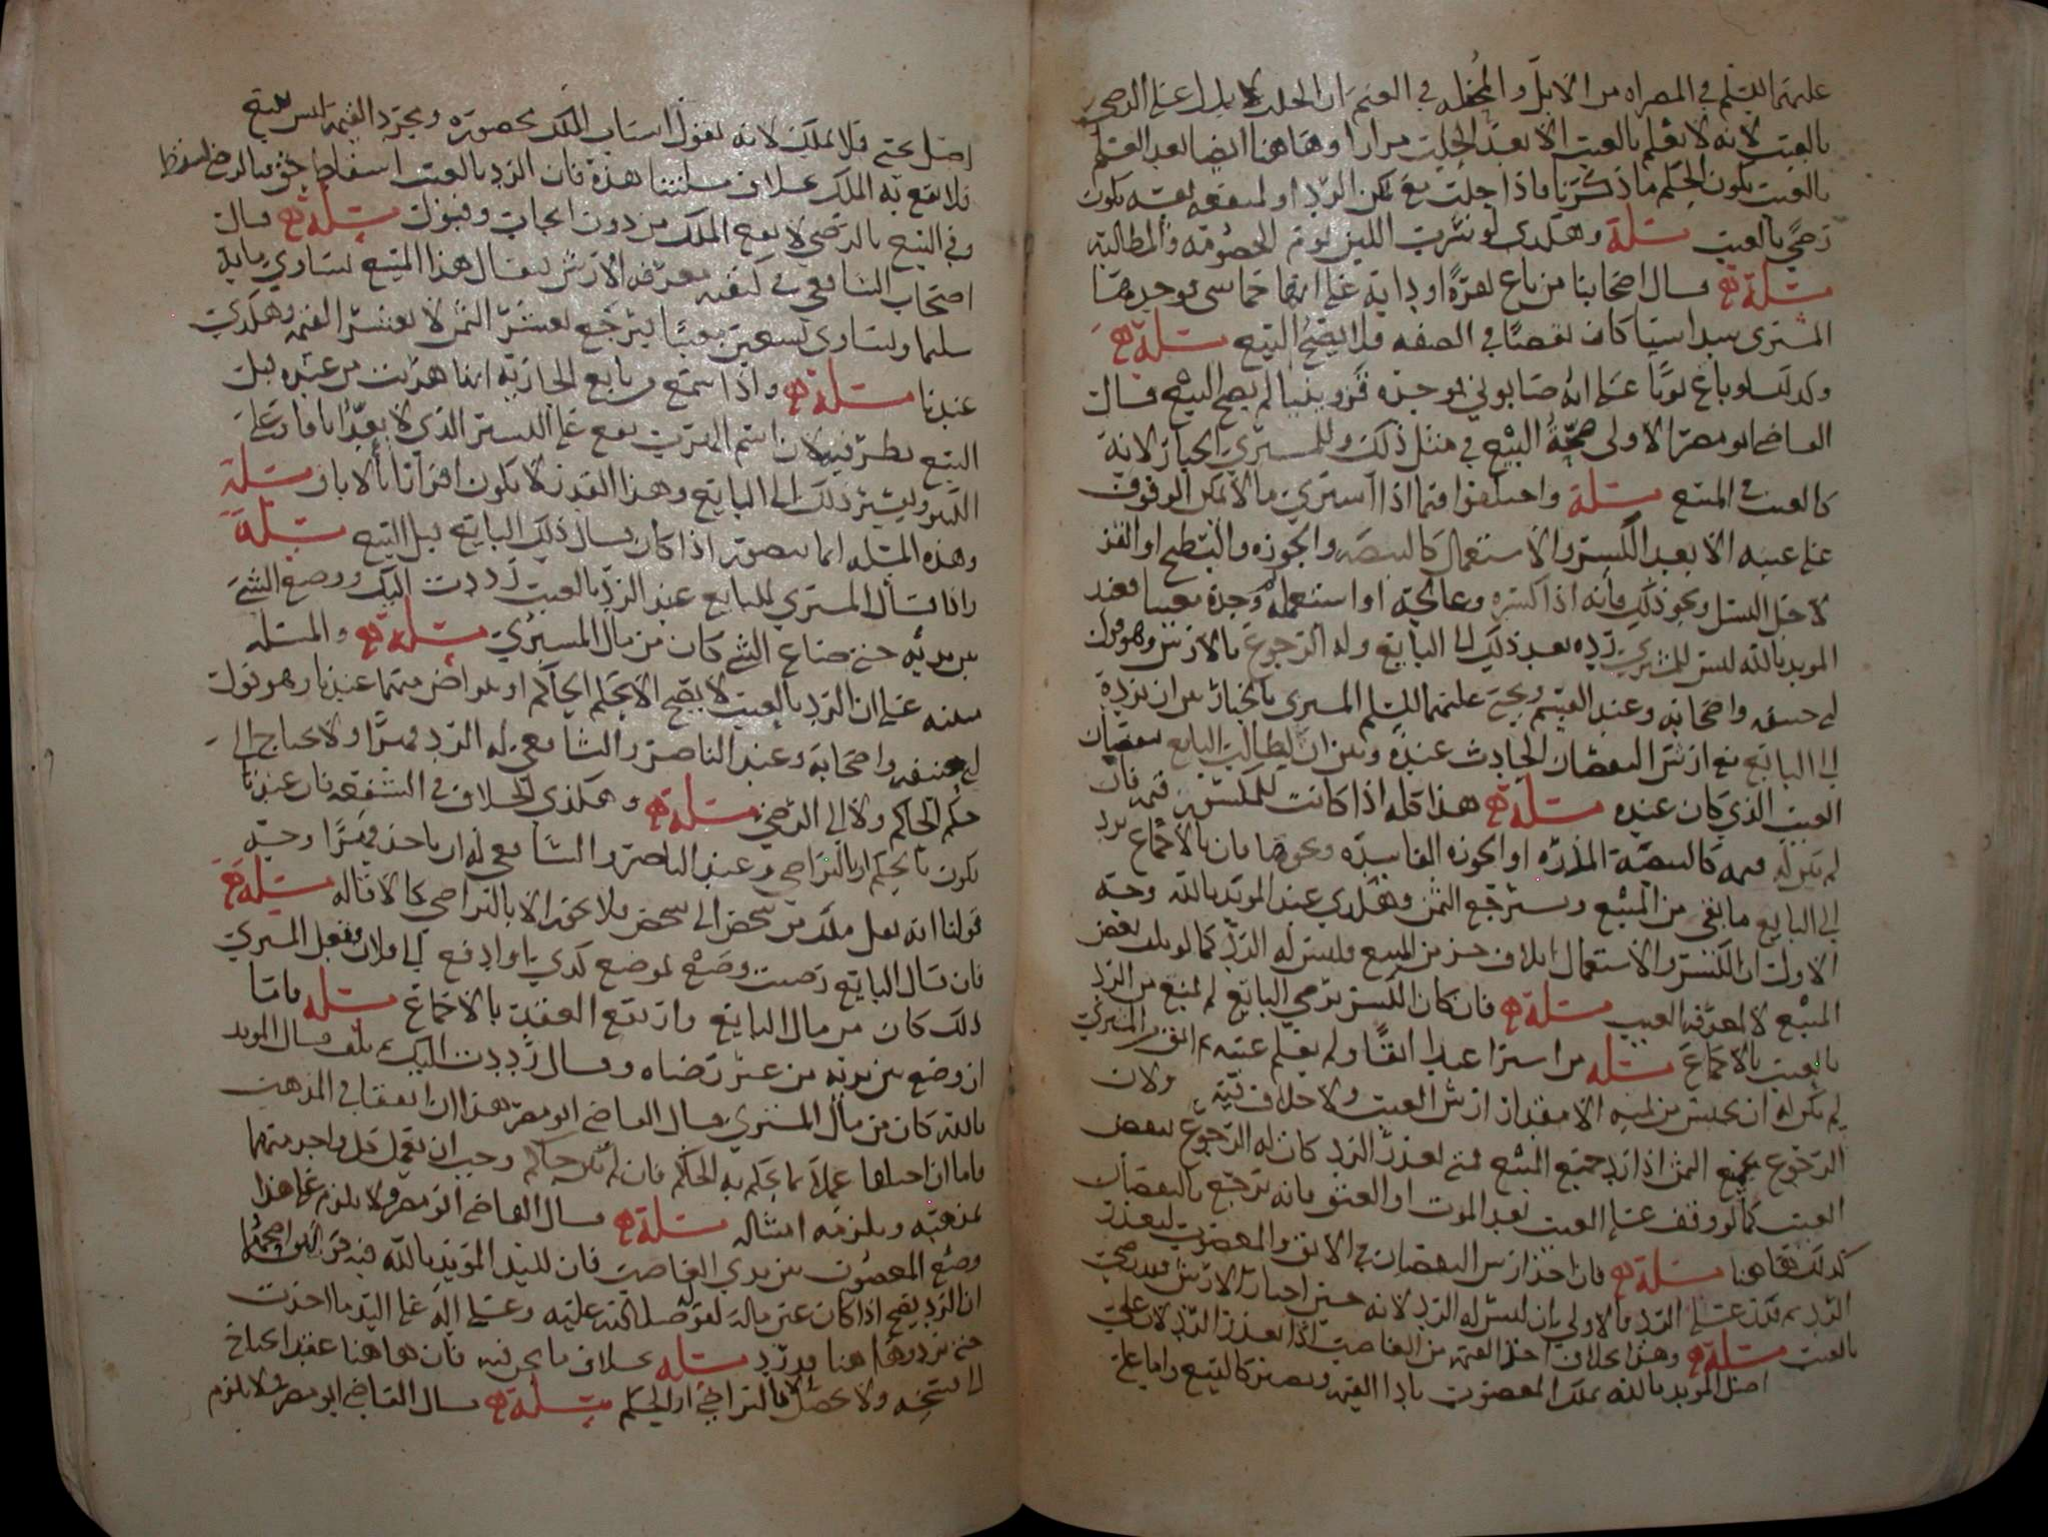 عليهما السلم في المصراه من الابل والمحفله في الغنم ان الحلب لا يدل على الرضى
بالعيب لانه لا يعلم بالعيب الا بعد الحلب مرارا وهاهنا ايضا بعد العلم
بالعيب يكون الحكم ما ذكرنا فاذا حلب مع تمكن الرد او لمنفعه نفسه يكون
رضى بالعيب مسلة وهكذى لو شرب اللبن يوم الخصومه والمطالبة
مسلة قال اصحابنا من باع بقرة او دابة على انها خماسى فوجدها
المشترى سداسيا كان نقصا في الصفه فلا يصح البيع مسلة
وكذلك لو باع ثوبا على انه صابوني فوجده قزوينيا لم يصح البيع قال
القاضي ابو مضر الاولى صحة البيع في مثل ذلك وللمشتري الخيار لانه
كالعيب في المبيع مسلة واختلفوا فيما اذا اشترى ما لا يمكن الوقوف
على عيبه الا بعد الكسر والاستعمال كالبيضه والجوزه والبطيخ او القز
لاجل النسل ونحو ذلك فانه اذا كسره وعالجه او استعمله وجده معيبا فعند
المويد بالله ليس للمشتري رده بعد ذلك الى البايع وله الرجوع بالارش وهو قول
ابي حنيفه واصحابه وعند القسم ويحيى عليهما السلم المشتري بالخيار بين ان يرده
الى البايع مع ارش النقصان الحادث عنده وبين ان يطالب البايع بنقصان
العيب الذي كان عنده مسلة هذا كله اذا كانت للمكسر قيمه فان
لم يكن له قيمه كالبيضه المذره او الجوزه الفاسده ونحوها فان بالاجماع يرد
الى البايع ما بقي من المبيع ويسترجع الثمن وهكذى عند المويد بالله وجه
الاول ان الكسر والاستعمال اتلاف جزء من المبيع فليس له الرد كما لو تلف بعض
المبيع لا لمعرفه العيب مسلة فان كان الكسر برضى البايع لم يمنع من الرد
بالعيب بالاجماع مسلة من اشترا عبدا ابقا ولم يعلم عيبه ثم ابق من المشتري
لم يكن له ان يحبس من ثمنه الا مقدار ارش العيب ولا خلاف فيه ولان
الرجوع بجميع الثمن اذا رد جميع المبيع فمتى تعذر الرد كان له الرجوع بنقص
العيب كما لو وقف على العيب بعد الموت او العتق فانه يرجع بالنقصان
كذلك هاهنا مسلة فان اخذ ارش النقصان في الابق والمعصوب لتعذر
الرد ثم قدر على الرد فالاولى ان ليس له الرد لانه حين اختار الارش فقد رضى
بالعيب مسلة وهذا بخلاف اخذ القيمه من الغاصب اذا تعذر الرد لان على
اصل المويد بالله يملك المغصوب باداء القيمه ويصير كالبيع واما على
اصل يحيى فلا يملك لانه يقول اسباب الملك محصوره ومجرد القيمه ليس ببيع
فلا يقع به الملك بخلاف مسلتنا هذه فان الرد بالعيب اسقاط حق فبالرضى اسقط
وفي البيع بالرضى لا يقع الملك من دون ايجاب وقبول مسلة قال
اصحاب الشافعي في كيفيه معرفه الارش يقال هذا المبيع يساوي مايه
سليما ويساوي تسعين معيبا فيرجع بعشر الثمن لا بعشر القيمه وهكذى
عندنا مسلة واذا سمع من بايع الجارية انها هربت من عنده قبل
البيع نظر فيه لان اسم الهرب يقع على اليسير الذي لا يعد اباقا وعلى
الكثير وليشير ذلك الى البايع وهذا القدر لا يكون اقرارا بالاباق مسلة
وهذه المسله انما تتصور اذا كان قال ذلك البايع قبل البيع مسلة
واذا قال المشتري للبايع عند الرد بالعيب رددت اليك ووضع الشي
بين يديه حتى ضاع الشي كان من مال المشتري مسلة والمسله
مبنيه على ان الرد بالعيب لا يصح الا بحكم الحاكم او بتراض منهما عندنا وهو قول
ابي حنيفه واصحابه وعند الناصر والشافعي له الرد قهرا ولا يحتاج الى
حكم الحاكم ولا الى الرضى مسلة وهكذى الخلاف في الشفعه فان عندنا
يكون بالحكم او بالتراضي وعند الناصر والشافعي له ان ياخذ قهرا وجه
قولنا انه نقل ملك من شخص الى شخص فلا يكون الا بالتراضي كالاقاله مسلة
فان قال البايع رضيت وضعه لموضع كذي او ادفع الى فلان ففعل المشتري
ذلك كان من مال البايع وارتفع العقد بالاجماع مسله فاما
ان وضع بين يديه من غير رضاه وقال رددت اليك فتلف قال المويد
بالله كان من مال المشتري قال القاضي ابو مضر هذا ان اتفقا في المذهب
فاما ان اختلفا عملا بما يحكم به الحاكم فان لم يكن حاكم وجب ان يعمل كل واحد منهما
بمذهبه ويلزمه امتثاله مسلة قال القاضي ابو مضر ولا يلزم على هذا
وضع المغصوب بين يدي الغاصب فان للسيد المويد بالله فيه قولان اصحهما
ان الرد يصح اذا كان عين ماله لقوله صلى الله عليه وعلى اله على اليد ما اخذت
حتى ترد وهاهنا قد رد مسله بخلاف ما نحن فيه فان هاهنا عقد احتاج
الى فسخه ولا يحصل الا بالتراضي او الحكم مسلة قال القاضي ابو مضر ولا يلزم